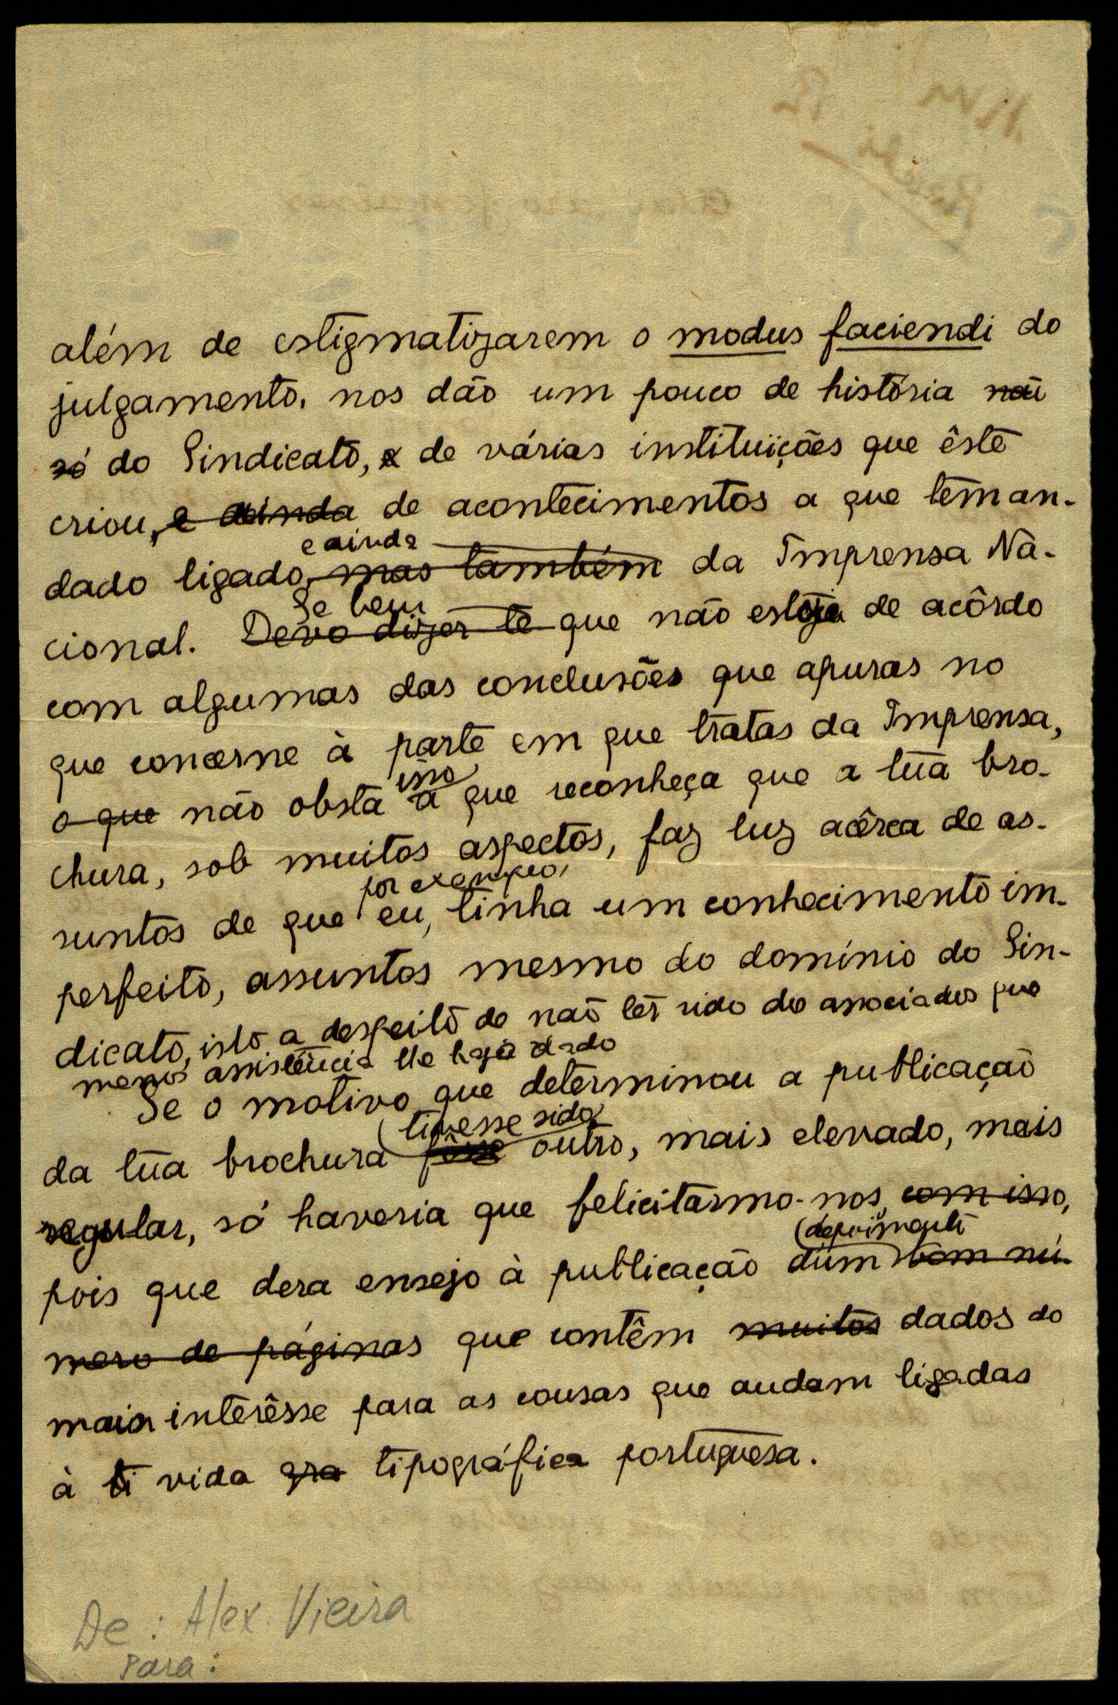 além de estigmatizarem o modus faciendi do
julgamento, nos dão um pouco de história não
só do Sindicato, e de várias instituïções que êste
criou, e ainda de acontecimentos a que têm an-
e ainda
dado ligado, mas também da Imprensa Na-
Se bem
cional. Devo dizer-te que não esteja de acôrdo
com algumas das conclusões que apuras no
que concerne à parte em que tratas da Imprensa,
isso
o que não obsta a que reconheça que a tua bro-
chura, sob muitos aspectos, faz luz acêrca de as-
por exemplo,
suntos de que eu, tinha um conhecimento im-
perfeito, assuntos mesmo do domínio do Sin-
dicato, isto a despeito de não ter sido dos associados que
menos assistência lhe haja dado
Se o motivo que determinou a publicação
tivesse sido
da tua brochura fôsse outro, mais elevado, mais
regular, só haveria que felicitarmo-nos com isso,
depoimento
pois que dera ensejo à publicação dum bom nú-
mero de páginas que contêm muitos dados do
maior interêsse para as cousas que andam ligadas
à ti vida gra tipográfica portuguesa.
De: Alex. Vieira
Para: